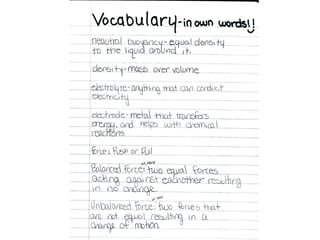 Vocabulary-in own words!!
neutral buoyancy-equal density
to the liquid around it.
density-mass over volume
electrolyte-anything that can conduct
electricity
electrode-metal that transfers
energy, and helps with chemical
reactions
Force: Push or Pull
Balanced Force: two equal forces
acting against eachother resulting
in no change.
Unbalanced Force: two forces that
are not equal resulting in a
change of motion.